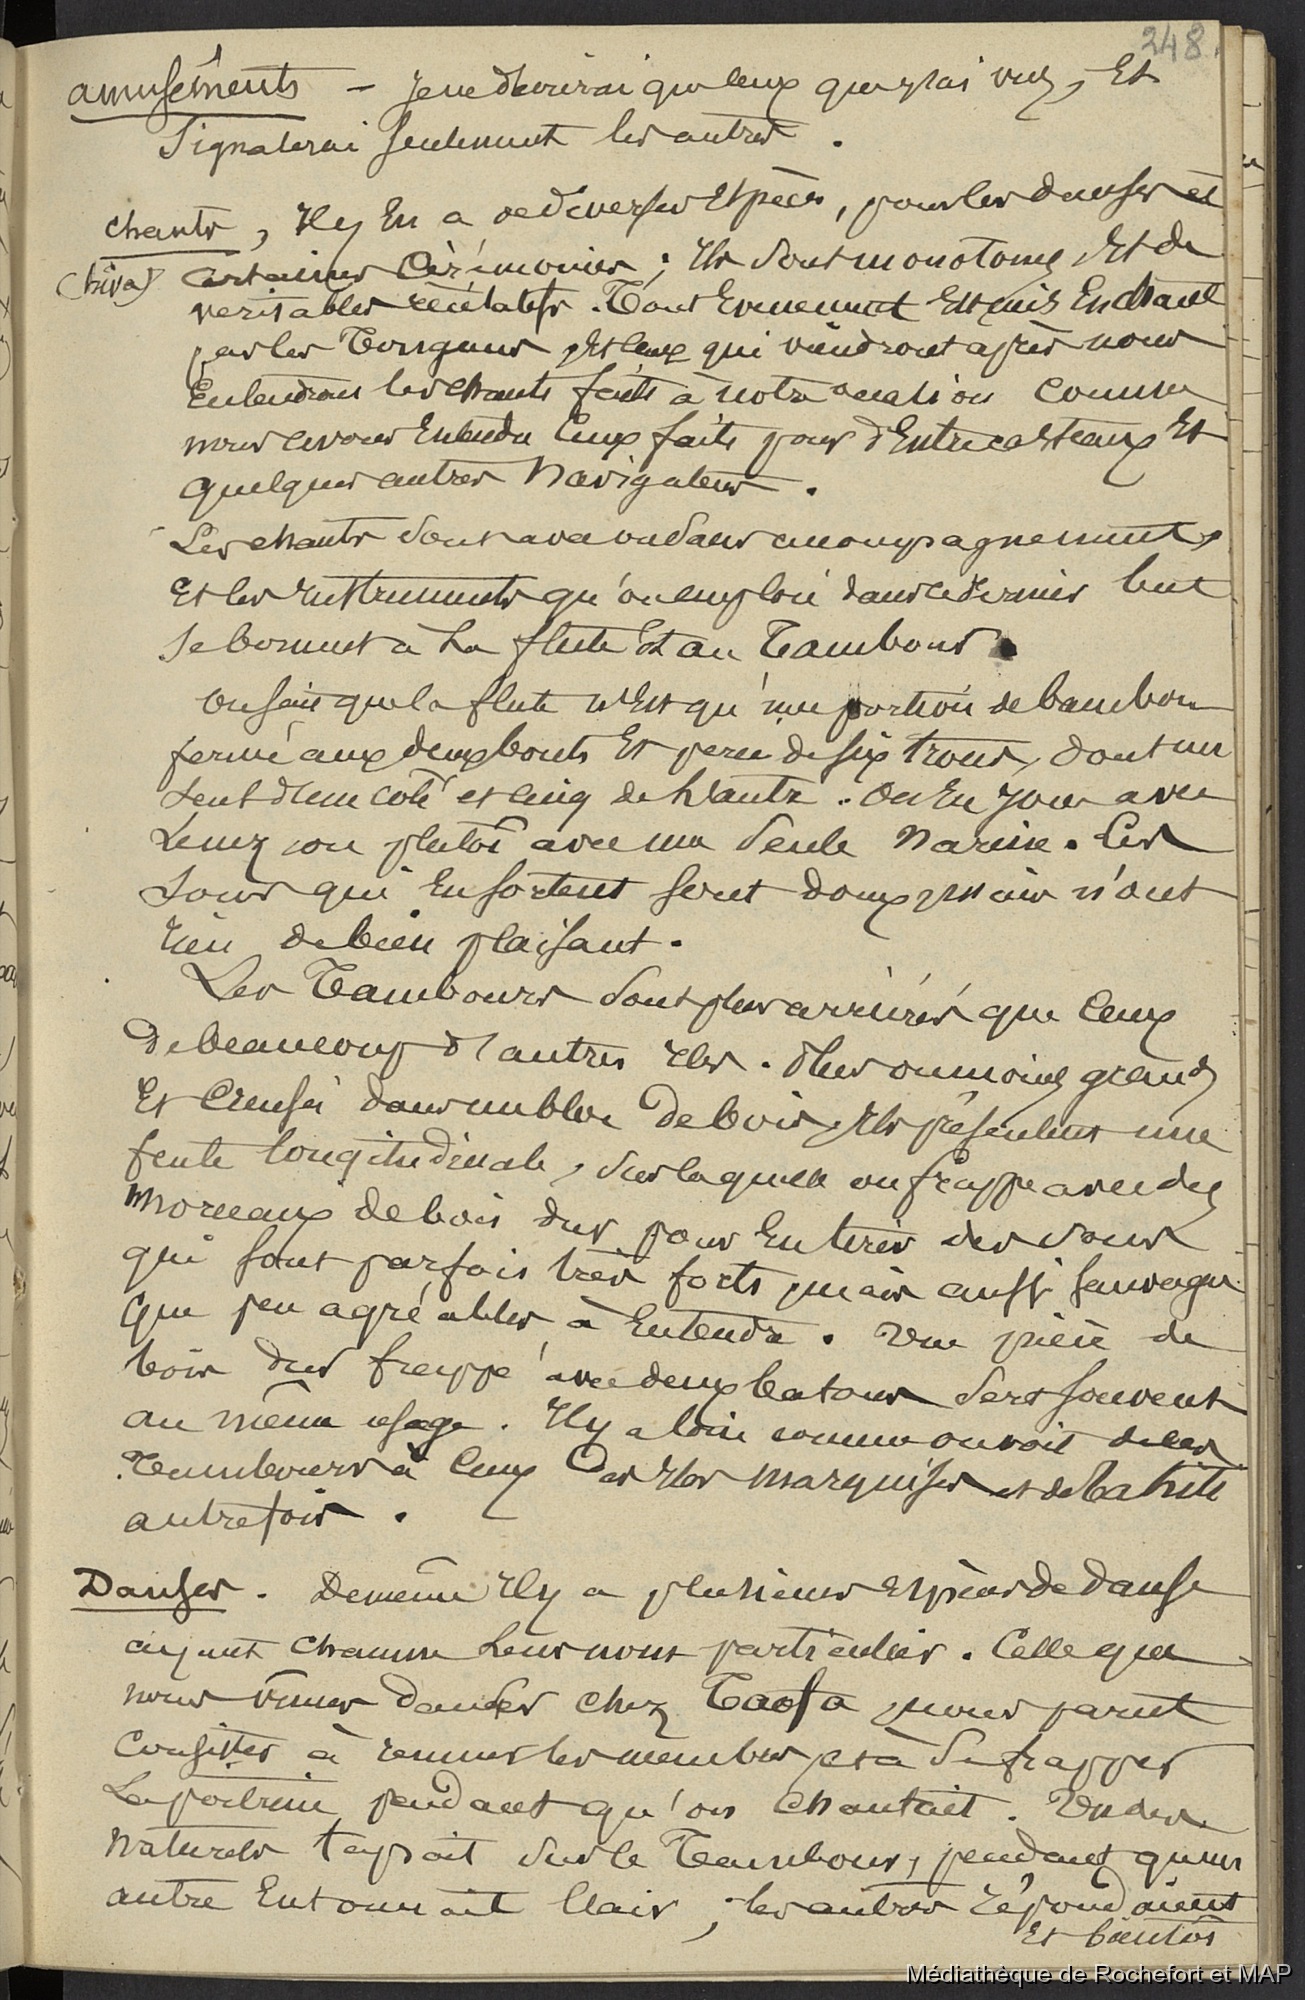 248.
amusements – je ne décrirai que ceux que j'ai vus, et
signalerai seulement les autres.
chants, il y en a de diverses espèces, pour les danses et
(hiva) certaines cérémonies; ils sont monotones et de
veritables récitatifs. Tout evenement est mis en chant
par les Tongiens, et ceux qui viendront après nous
entendront les chants faits à notre occasion comme
nous avons entendu ceux faits pour d'Entrecasteaux et
quelques autres navigateurs.
Les chants sont avec ou sans accompagnement,
et les instruments qu'on emploie dans ce dernier but
se bornent à la flute et au Tambour.
On sait que la flute n'est qu'une portion de bambou
fermé aux deux bouts et percé de six trous, dont un
seul d'un coté et cinq de l'autre. On en joue avec
le nez ou plutôt avec une seule narine. Les
sons qui en sortent sont doux, mais n'ont
rien de bien plaisant.
Les Tambours sont plus arriérés que ceux
de beaucoup d'autres iles. Plus ou moins grands
et creusés dans un bloc de bois, ils présentent une
fente longitudinale, sur laquelle on frappe avec des
morceaux de bois dur pour en tirer des sons
qui sont parfois très forts, mais aussi sauvages
que peu agréables à entendre. Une pièce de
bois dur frappé avec deux batons sert souvent
au même usage. Il y a loin comme on voit de ces
Tambours à ceux des iles marquises et de Tahiti
autrefois.
Danses. De même il y a plusieurs espèces de danse
ayant chacune leur nom particulier. Celle que
nous vimes danser chez Taofa, nous parut
consister à remuer les membres, et à se frapper
la poitrine pendant qu'on chantait. Un des
naturels tapait sur le Tambour, pendant qu'un
autre entonnait l'air, les autres répondaient
et bientôt
Médiathèque de Rochefort et MAP